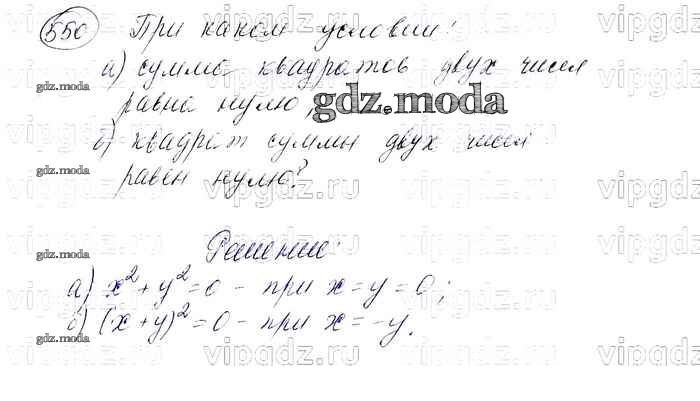 550 При каком условии:
а) сумма квадратов двух чисел
равна нулю,
б) квадрат суммы двух чисел
равен нулю?
Решение:
а) x² + y² = 0 - при x = y = 0;
б) (x + y)² = 0 - при x = -y.
gdz.moda
gdz.moda
gdz.moda
gdz.moda
gdz.moda
vipgdz.ru